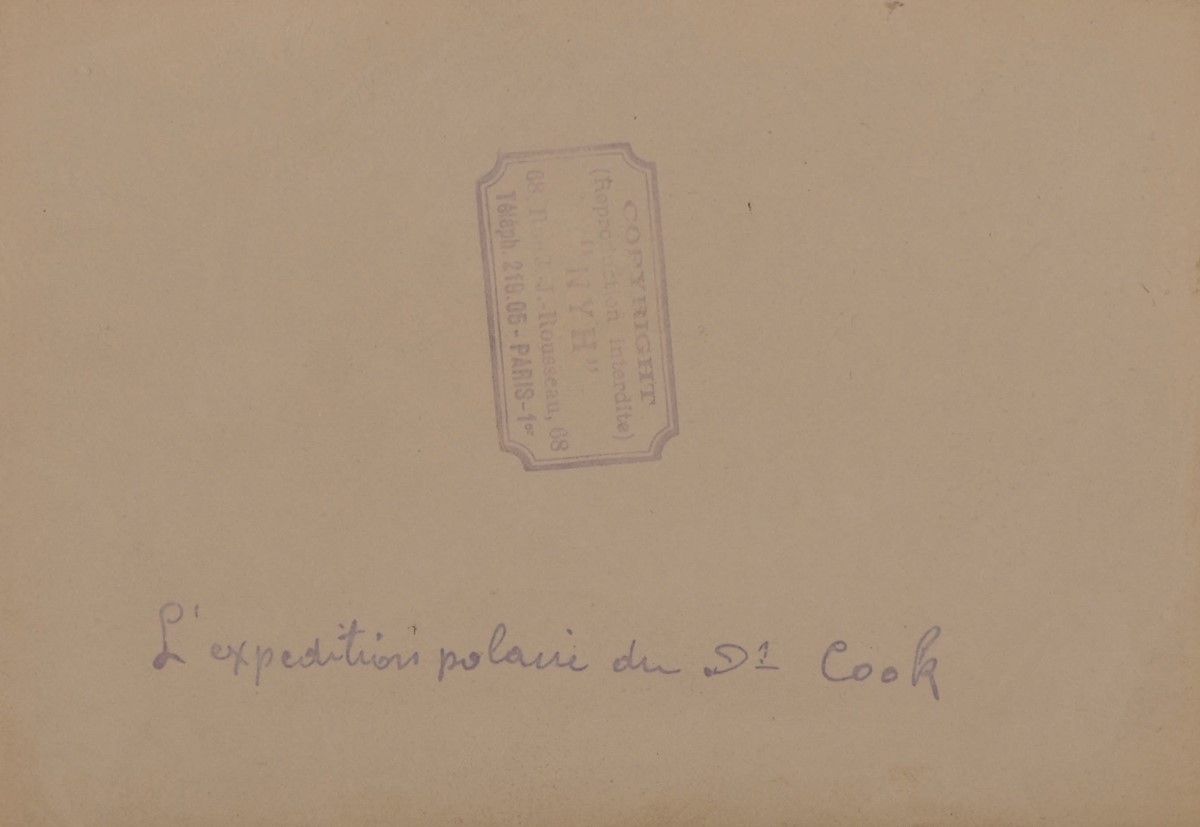 COPYRIGHT
(Reproduction interdite)
"NYH"
68, R J.-J.-Rousseau, 68
Téléph. 219.05 - PARIS-1er
L'expedition polaire du Dr Cook